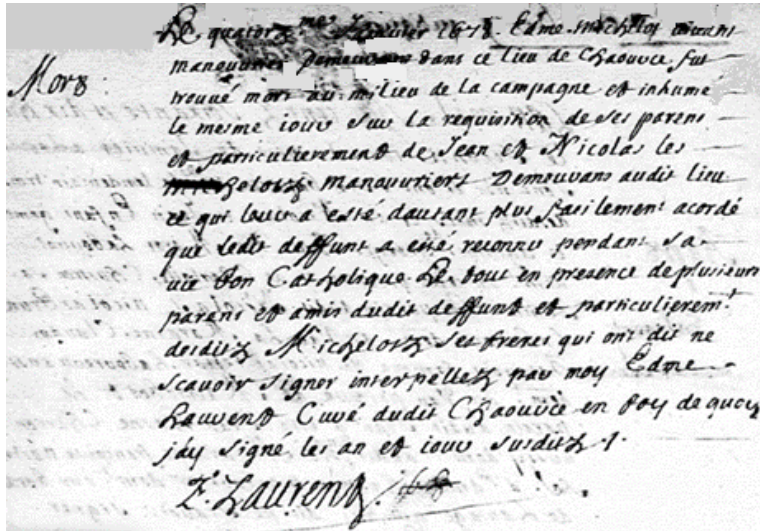 Le quatorz.me Janvier 1678. Edme Michelot vivant
Mort
manouvrier Demeurant dans ce lieu de Chaource fut
trouvé mort au milieu de la campagne et inhumé
le mesme iour sur la requisition de ses parens
et particulierement de Jean et Nicolas les
Michelotz manouvriers Demeurans audit lieu
ce qui leur a esté dautant plus facilement acordé
que ledit deffunt a esté reconnu pendant sa
vie bon Catholique Le tout en presence de plusieurs
parens et amis dudit deffunt et particulierem.t
desditz Michelotz ses freres qui ont dit ne
scavoir signer interpellez par moy Edme
Laurent Curé dudit Chaource en foy de quoy
jay signé les an et iour susditz
E. Laurent